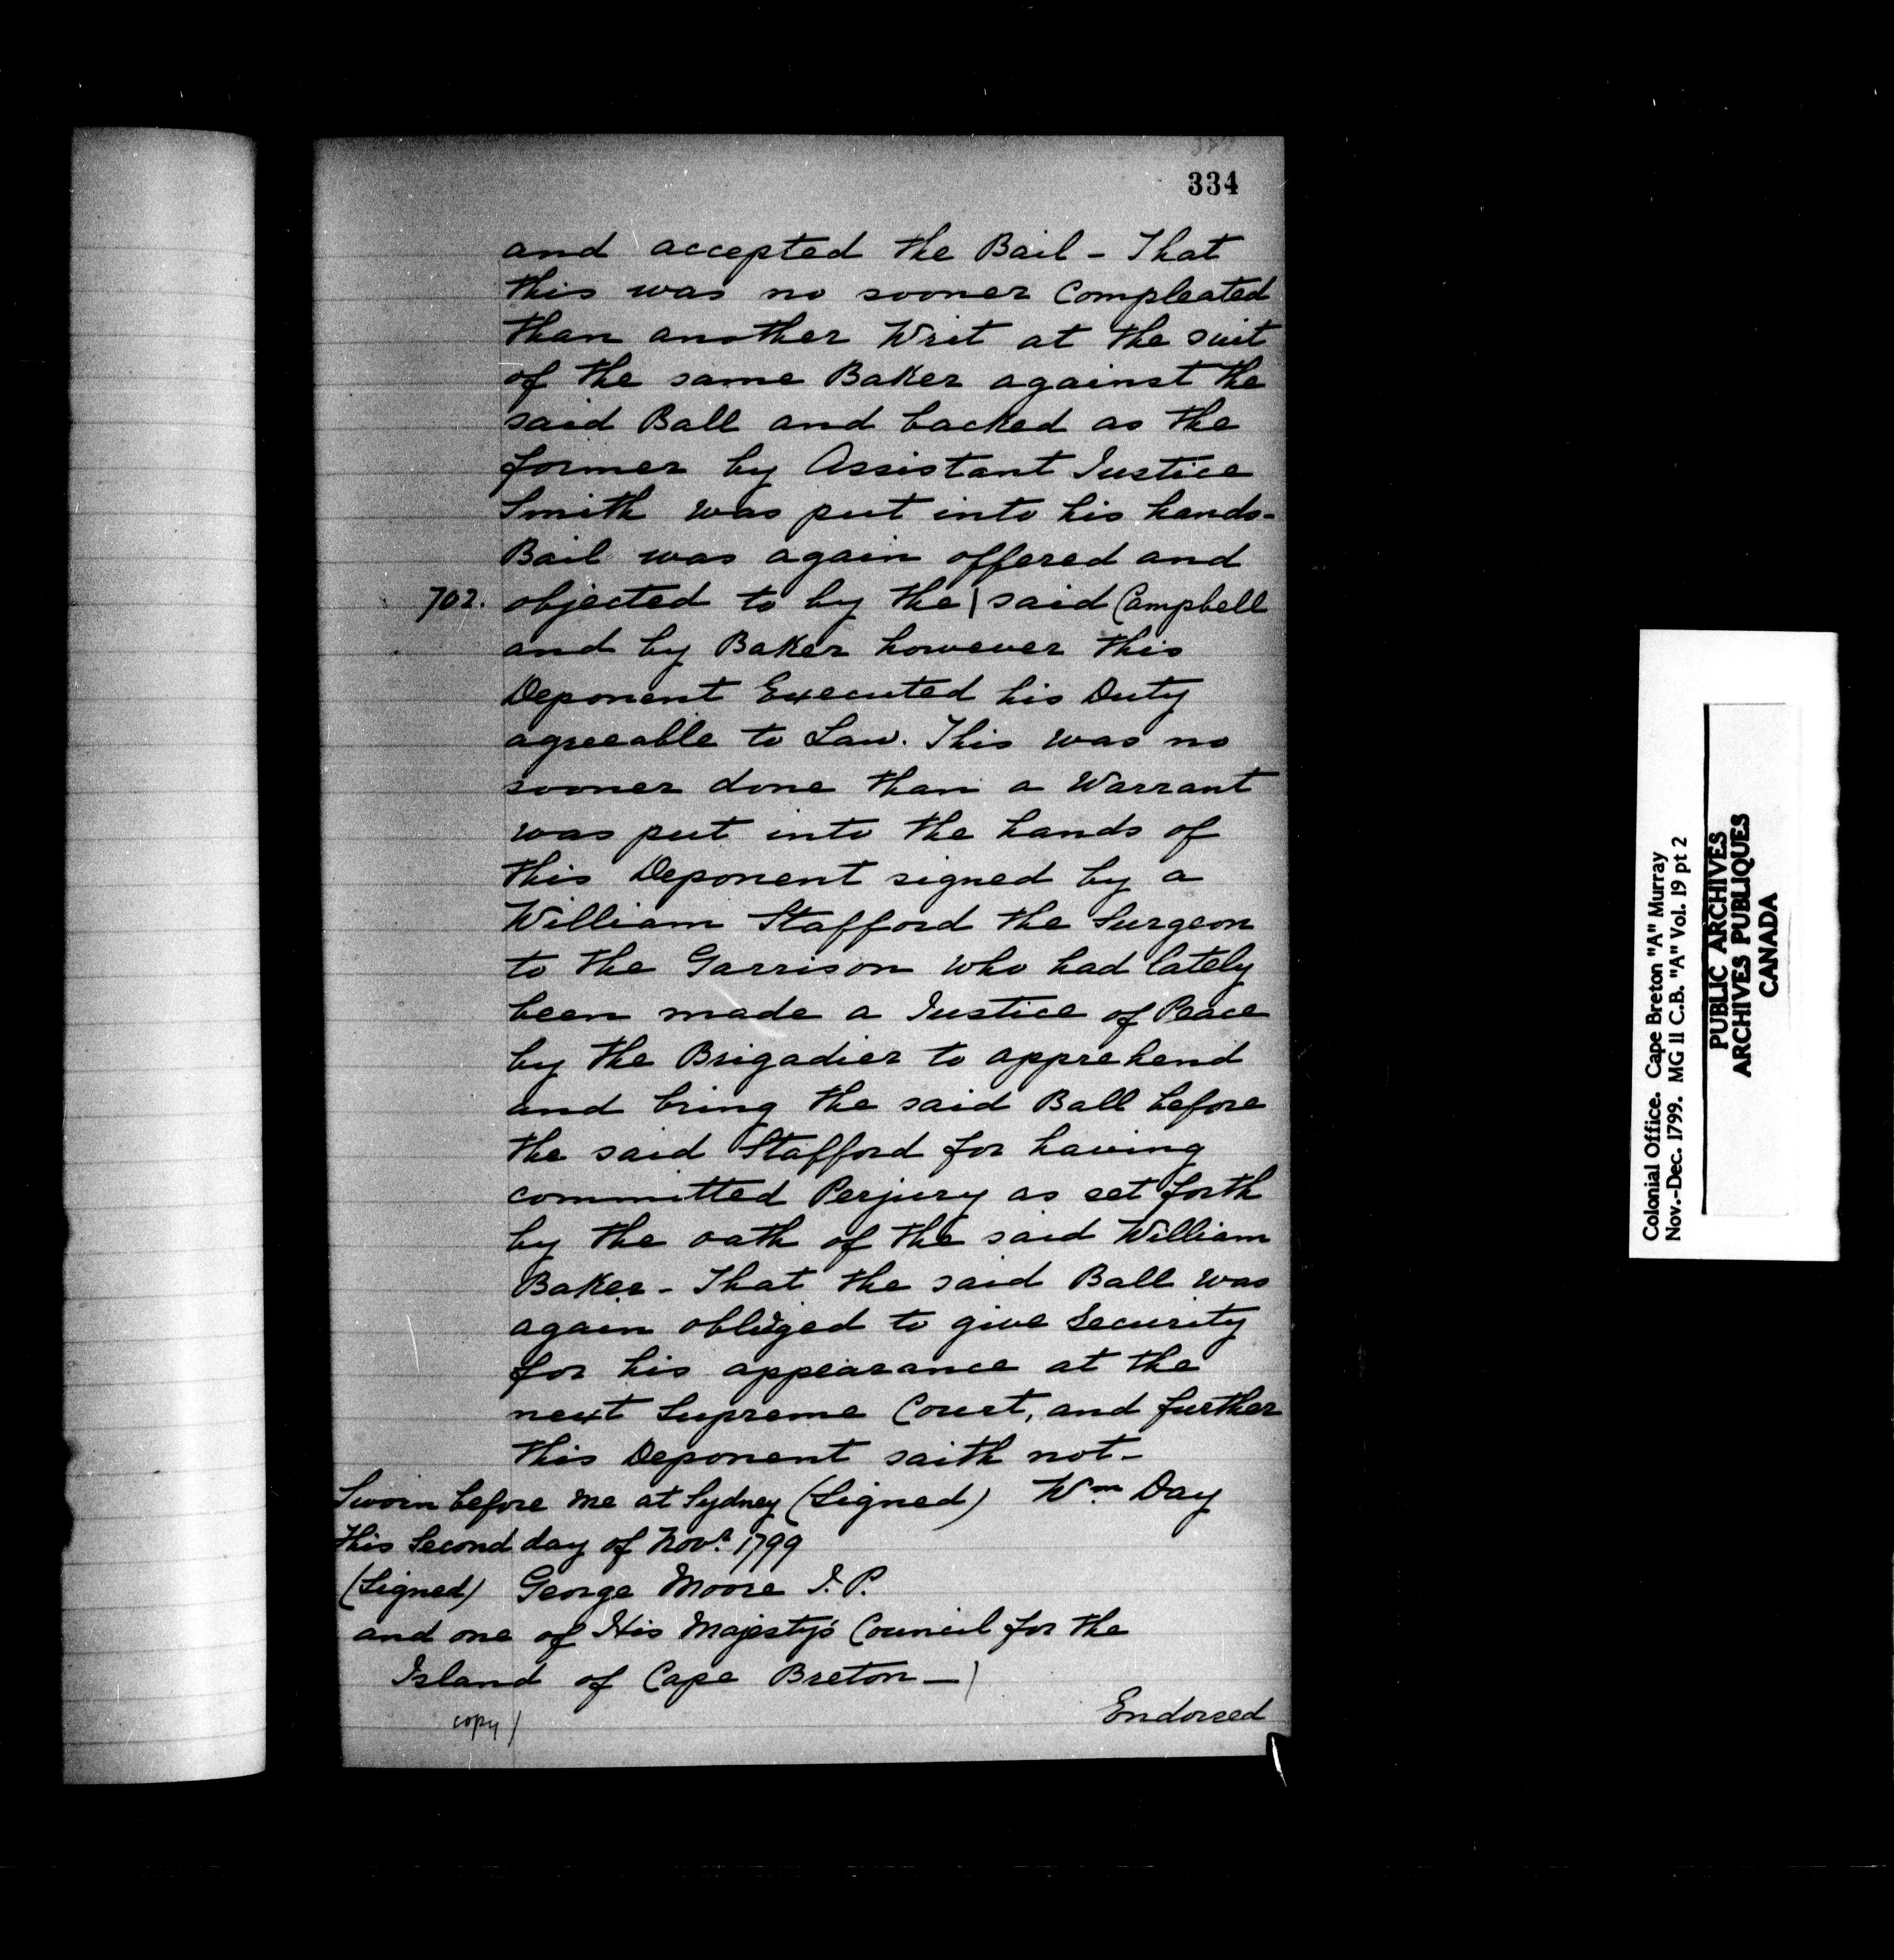 334
and accepted the Bail - That
this was no sooner Compleated
than another Writ at the suit
of the same Baker against the
said Ball and backed as the
former by Assistant Justice
Smith was put into his hands-
Bail was again offered and
702. objected to by the | said Campbell
and by Baker however this
Deponent Executed his Duty
agreeable to Law. This was no
sooner done than a Warrant
was put into the hands of
this Deponent signed by a
William Stafford the Surgeon
to the Garrison who had lately
been made a Justice of Peace
by the Brigadier to apprehend
and bring the said Ball before
the said Stafford for having
committed Perjury as set forth
by the oath of the said William
Baker - That the said Ball was
again obliged to give Security
for his appearance at the
next Supreme Court, and further
this Deponent saith not-
Sworn before me at Sydney (Signed) Wm Day
this Second day of Novr. 1799
(Signed) George Moore J.P.
and one of His Majesty's Council for the
Island of Cape Breton - )
copy )
Endorsed
Colonial Office. Cape Breton "A" Murray
Nov.-Dec. 1799. MG 11 C.B. "A" Vol. 19 pt 2
PUBLIC ARCHIVES
ARCHIVES PUBLIQUES
CANADA